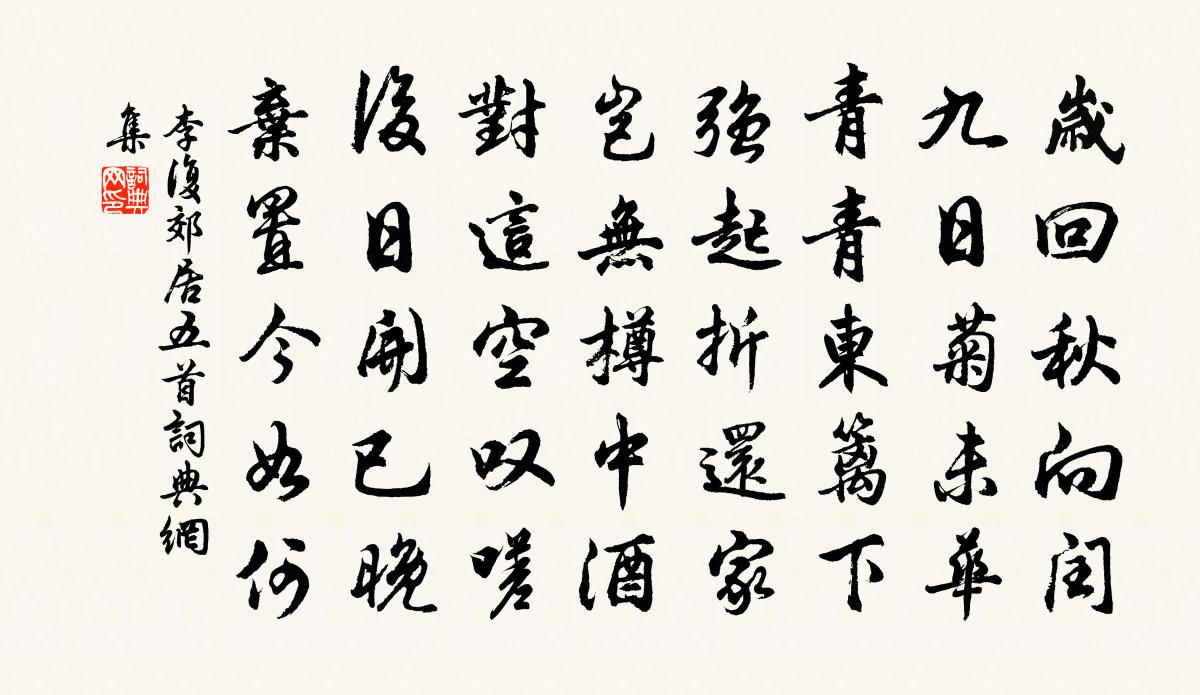 歲回秋向閏
九日菊未華
青青東籬下
强起折還家
豈無樽中酒
對這空叹嗟
後日開已晚
棄置今如何
李復郊居五首詞典網
集
詞典网印